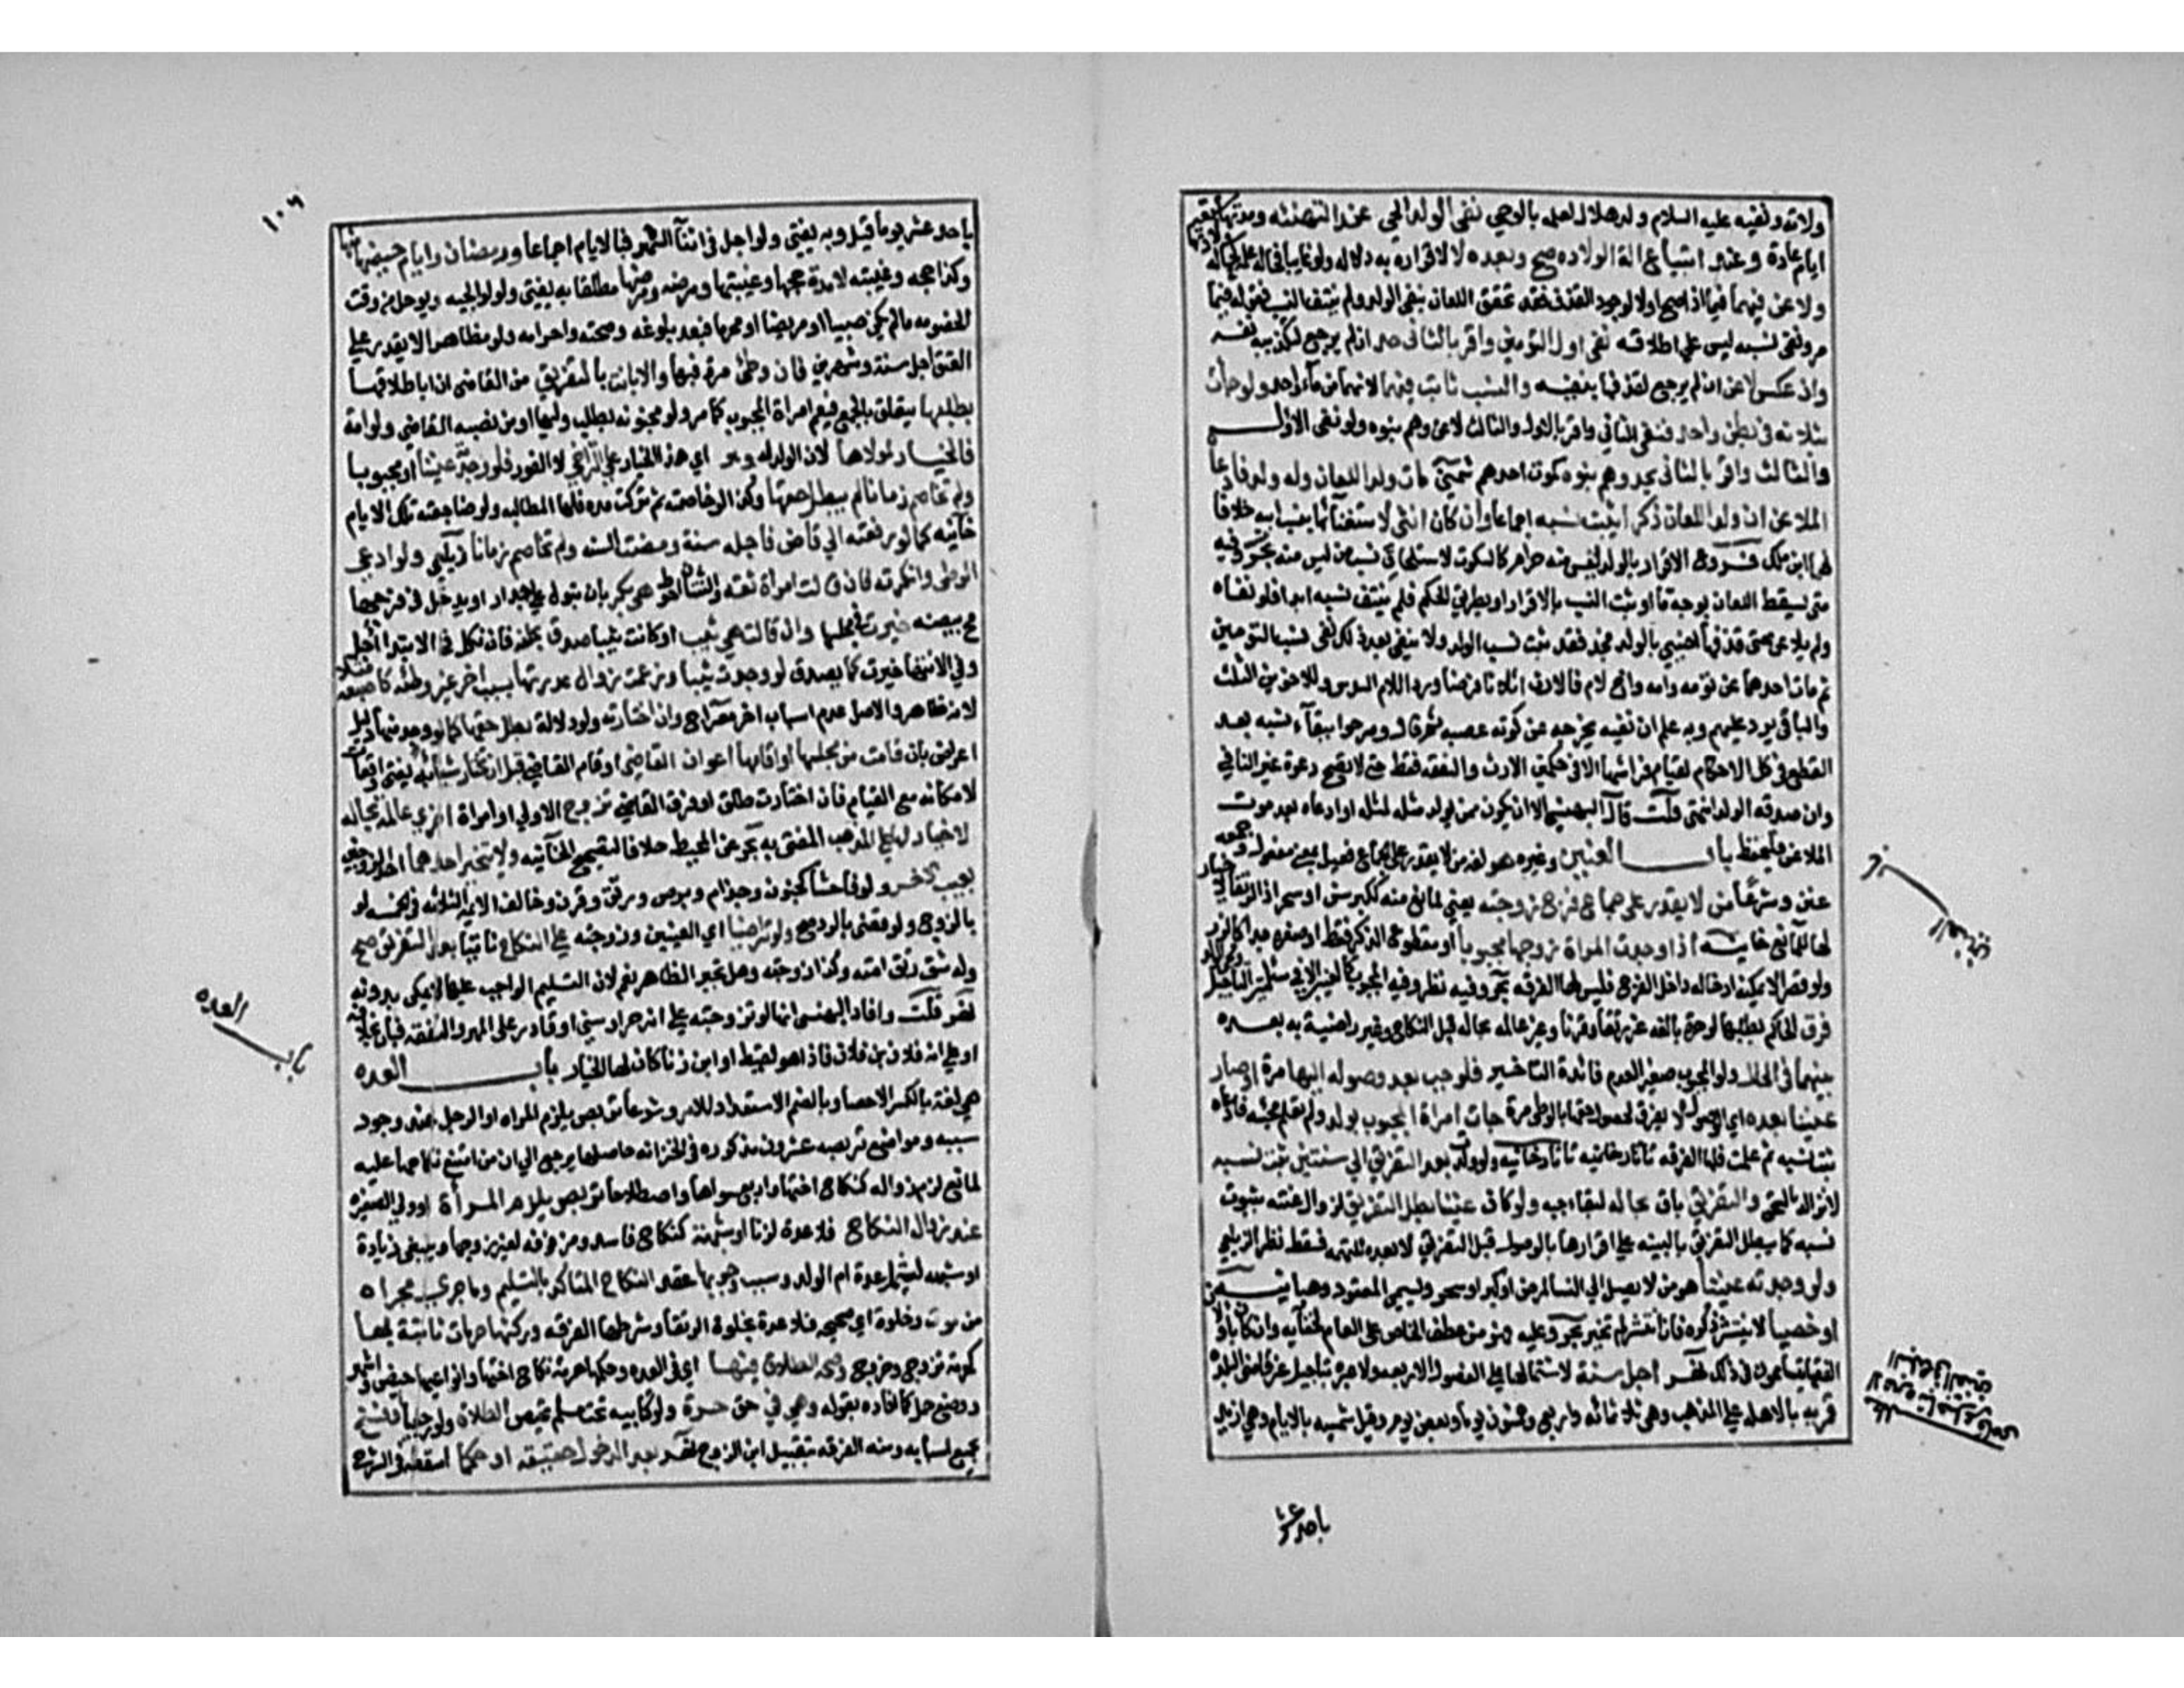 ولادته ونفيه عليه السلام ولد هلال لعلمه بالوحي نفى الولد الحي عند التهنئة ومدتها سبعة
ايام عادة وعند ابتياع آلة الولادة صح وبعده لا لاقراره به دلالة ولو غايبا فحالة علمه كحالة
ولاعن فيهما فيما اذا صح او لا لوجود القذف فقد تحقق اللعان بنفى الولد ولم ينتف النسب فقوله فيما
مر ونفى نسبه ليس على اطلاقه نفى اول التومين واقر بالثانى حد ان لم يرجع لتكذيبه نفسه
وان عكس لاعن ان لم يرجع لقذفها بنفيه والنسب ثابت فيهما لانهما من ماء واحد ولو جاءت
بثلاثة في بطن واحد فنفى الثاني واقر بالاول والثالث لاعن وهم بنوه ولو نفى الاول
والثالث واقر بالثانى يحد وهم بنوه كموت احدهم شمني مات ولد اللعان وله ولد فادعاه
الملاعن ان ولد اللعان ذكرا يثبت نسبه اجماعا وان كان انثى لا لاستغنائه بنسب ابيه خلافا
لهما ابن ملك فروع الاقرار بالولد ليس منه حرام كالسكوت لاستلحاق نسب من ليس منه بحر وفيه
متى سقط اللعان بوجه ما او ثبت النسب بالاقرار او بطريق الحكم فلم ينتف نسبه ابدا فلو نفاه
ولم يلاعن حتى قذفها اجنبي بالولد فحد فقد ثبت نسب الولد ولا ينتفى بعد ذلك نفى نسب التومين
ثم مات احدهما عن تومه وامه واخ لام فالارث اثلاثا فرضا وردا للام السدس وللاخوين الثلث
والباقي يرد عليهم وبه علم ان نفيه يخرجه عن كونه عصبة وصرحوا ببقاء نسبه بعد
القطع في كل الاحكام لقيام فراشها الا في حكمين الارث والنفقة فقط حتى لا تصح دعوة غير النافي
وان صدقه الولد انتهى قلت قال البهنسي الا ان يكون ممن يولد مثله لمثله او ادعاه بعد موت
الملاعن فليحفظ باب العنين وغيره هو لغة من لا يقدر على الجماع فعيل بمعنى مفعول وجمعه
عنن وشرعا من لا يقدر على جماع فرج زوجته يعني لمانع منه ككبر سن او سحر اذ الرتقا لا خيار
لها للمانع خانية اذا وجدت المراة زوجها مجبوبا او مقطوع الذكر فقط او صغيره جدا كالزر
ولو قصيرا لا يمكنه ادخاله داخل الفرج فليس لها الفرقة بحر وفيه نظر وفيه المجبوب كالعنين الا في مسئلتين التاجيل
فرق الحاكم بطلبها لو حرة بالغة غير رتقاء وقرناء وغير عالمة بحاله قبل النكاح وغير راضية به بعده
بينهما في الحال ولو المجبوب صغيرا لعدم فائدة التاخير فلو جب بعد وصوله اليها مرة او صار
عنينا بعده اي الوصول لا يفرق لحصول حقها بالوطي مرة جاءت امراة المجبوب بولد ولم يعلم بجبه فادعاه
ثبت نسبه ثم علمت فلها الفرقة تاتارخانية ولو ولدت بعد التفريق الى سنتين ثبت نسبه
لانزاله بالسحق والتفريق باق بحاله لبقاء جبه ولو كان عنينا بطل التفريق لزوال عنته بثبوت
نسبه كما يبطل التفريق بالبينة على اقرارها بالوصول قبل التفريق لا بعده للتهمة فسقط نظر الزيلعي
ولو وجدته عنينا هو من لا يصل الى النسا لمرض او كبر او سحر ويسمى المعقود وهبانية
او خصيا لا ينتشر ذكره فان انتشر لم تخير بحر وعليه فهو من عطف الخاص على العام لخفائه وان كان باو لان
الفقها يتسامحون في ذلك نهر اجل سنة لاشتمالها على الفصول الاربعة ولا عبرة بتاجيل غير قاضي البلدة
قمرية بالاهلة على المذهب وهي ثلاثمائة واربع وخمسون يوما وبعض يوم وقيل شمسية بالايام وهي ازيد
باحد عشر
العنين
١٠٦
باحد عشر يوما قيل وبه يفتى ولو اجل في اثناء الشهر فبالايام اجماعا ورمضان وايام حيضها منها
وكذا حجه وغيبته لا مدة حجها وغيبتها ومرضه ومرضها مطلقا به يفتى ولوالجية ويوجل من وقت
الخصومة ما لم يكن صبيا او مريضا او محرما فبعد بلوغه وصحته واحرامه ولو مظاهرا لا يقدر على
العتق اجل سنة وشهرين فان وطئ مرة فبها والا بانت بالتفريق من القاضي ان ابا طلاقها
بطلبها يتعلق بالجميع فيعم امراة المجبوب كما مر ولو مجنونة بطلب وليها او من نصبه القاضي ولو امة
فالخيار لمولاها لان الولد له وهو اي هذا الخيار على التراخي لا الفور فلو وجدته عنينا او مجبوبا
ولم تخاصم زمانا لم يبطل حقها وكذا لو خاصمته ثم تركت مدة فلها المطالبة ولو ضاجعته تلك الايام
خانية كما لو رفعته الى قاض فاجله سنة ومضت السنة ولم تخاصم زمانا زيلعي ولو ادعى
الوطى وانكرته فان قالت امراة ثقة والثنتان احوط هي بكر بان تبول على جدار او يدخل في فرجها
مح بيضة خيرت في مجلسها وان قالت هي ثيب او كانت ثيبا صدق بحلفه فان نكل في الابتدا اجل
وفي الانتها خيرت كما يصدق لو وجدت ثيبا وزعمت زوال عذرتها بسبب اخر غير وطئه كاصبعه مثلا
لانه ظاهر والاصل عدم اسباب اخر معراج وان اختارته ولو دلالة بطل حقها كما لو وجد منها دليل
اعراض بان قامت من مجلسها او اقامها اعوان القاضي او قام القاضي قبل ان تختار شيئا به يفتى واقعات
لامكانه مع القيام فان اختارت طلق او فرق القاضي تزوج الاولى او امراة اخرى عالمة بحاله
لا خيار لها على المذهب المفتى به بحر عن المحيط خلافا لتصحيح الخانية ولا يتخير احدهما اي الزوجين
بعيب الآخر ولو فاحشا كجنون وجذام وبرص ورتق وقرن وخالف الايمة الثلاثة في الخمسة لو
بالزوج ولو قضى بالرد صح ولو تراضيا اي العنين وزوجته على النكاح ثانيا بعد التفريق صح
وله شق رتق امته وكذا زوجته وهل تجبر الظاهر نعم لان التسليم الواجب عليها لا يمكن بدونه
نهر قلت وافاد البهنسي انها لو تزوجته على انه حر او سني او قادر على المهر والنفقة فبان بخلافه
او على انه فلان بن فلان فاذا هو لقيط او ابن زنا كان لها الخيار باب العدة
هي لغة بالكسر الاحصا وبالضم الاستعداد للامر وشرعا تربص يلزم المراة او الرجل عند وجود
سببه ومواضع تربصه عشرون مذكورة في الخزانة حاصلها يرجع الى ان من امتنع نكاحها عليه
لمانع لزم زواله كنكاح اختها واربع سواها واصطلاحا تربص يلزم المراة او ولي الصغيرة
عند زوال النكاح فلا عدة لزنا او شبهته كنكاح فاسد ومزفوفة لغير زوجها وينبغى زيادة
او شبهه ليشمل عدة ام الولد وسبب وجوبها عقد النكاح المتاكد بالتسليم وما جرى مجراه
من موت وخلوة اي صحيحة فلا عدة بخلوة الرتقا وشرطها الفرقة وركنها حرمات ثابتة بها
كحرمة تزوج وخروج وصحة الطلاق فيها اي في العدة وحكمها حرمة نكاح اختها وانواعها حيض واشهر
ووضع حمل كما افاده بقوله وهي في حق حرة ولو كتابية تحت مسلم تحيض لطلاق ولو رجعيا او فسخ
بجميع اسبابه ومنه الفرقة بتقبيل ابن الزوج نهر بعد الدخول حقيقة او حكما اسقطه في الشرح
باب العدة